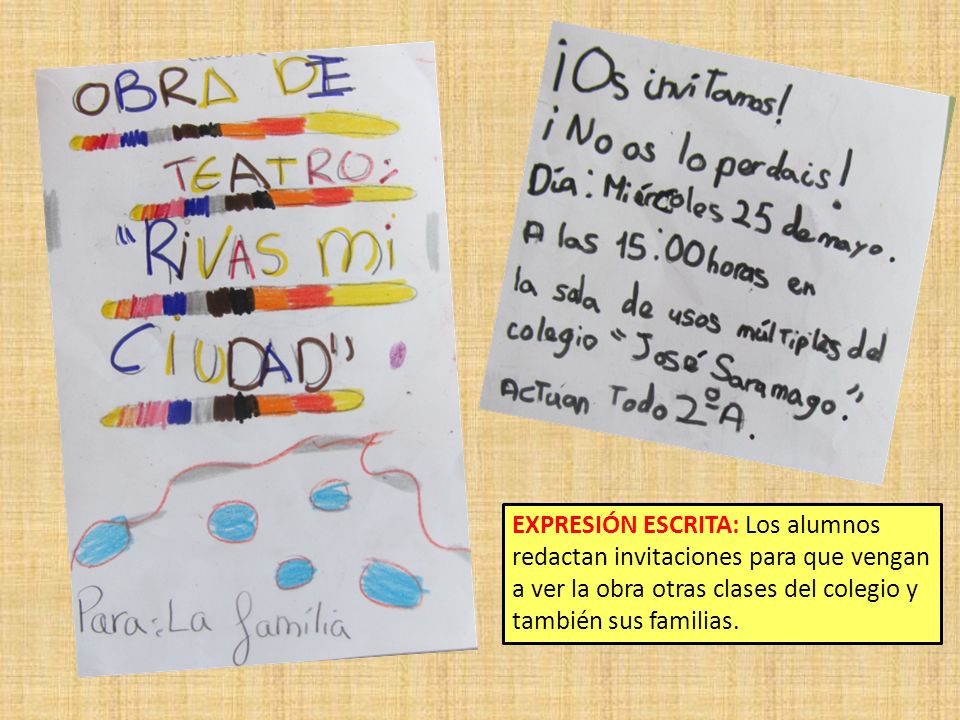 OBRA DE
TEATRO:
"RIVAS MI
CIUDAD"
Para: La família
¡Os invitamos!
¡No os lo perdais!
Día: Miércoles 25 de mayo.
A las 15:00 horas en
la sala de usos múltiples del
colegio "José Saramago".
Actúan Todo 2ºA.
EXPRESIÓN ESCRITA: Los alumnos
redactan invitaciones para que vengan
a ver la obra otras clases del colegio y
también sus familias.